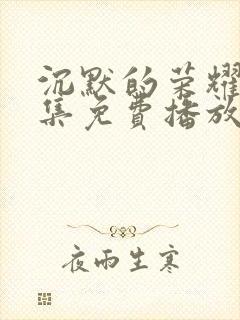 沉默的荣耀
集免費播放
夜雨生寒